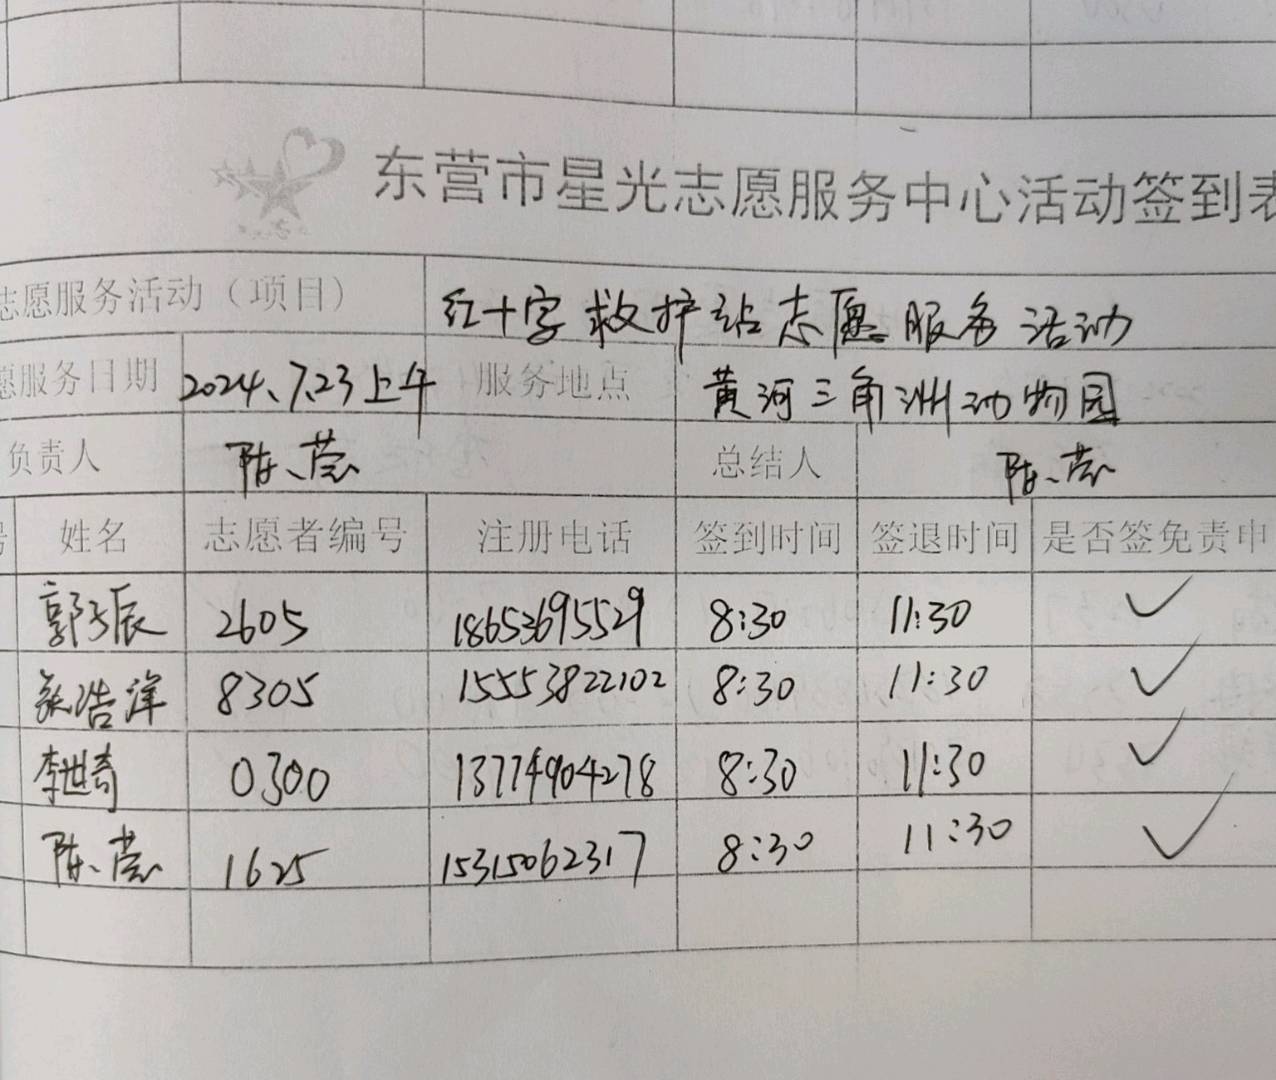 东营市星光志愿服务中心活动签到表
志愿服务活动（项目） 红十字救护站志愿服务活动
愿服务日期 2024.7.23上午 服务地点 黄河三角洲动物园
负责人 陈莹 总结人 陈莹
号 姓名 志愿者编号 注册电话 签到时间 签退时间 是否签免责申
郭子辰 2605 18653695529 8:30 11:30 ✓
张浩洋 8305 15553822102 8:30 11:30 ✓
李世奇 0300 13774904278 8:30 11:30 ✓
陈莹 1625 15315062317 8:30 11:30 ✓